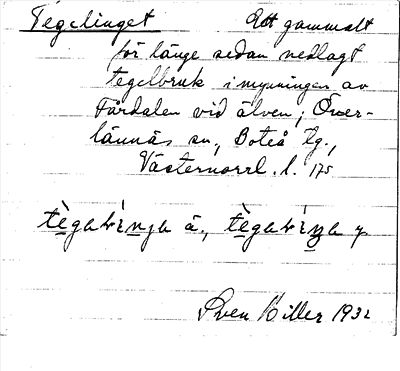 Tegelinget Ett gammalt
för länge sedan nedlagt
tegelbruk i mynningen av
dalen vid älven, Över-
lännäs sn., Boteå tg.,
Västernorrl. l. 175
ä., y.
Sven Hiller 1932